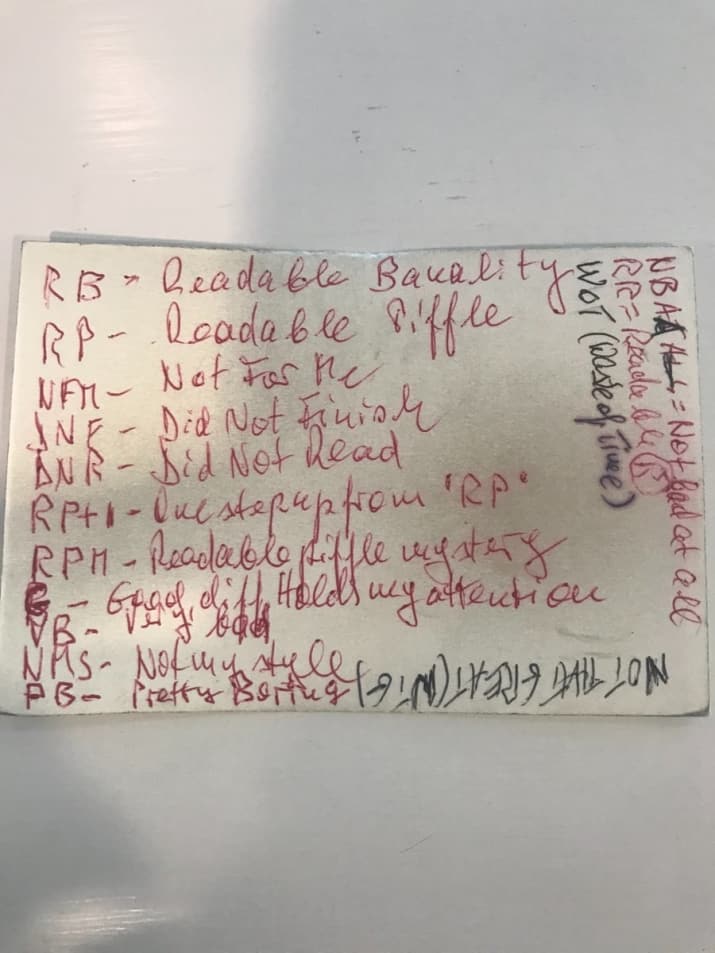 RB - Readable Banality
RP - Readable Piffle
NFM - Not For Me
DNF - Did Not Finish
DNR - Did Not Read
RP+1 - One step up from 'RP'
RPM - Readable piffle mystery
G - Good, diff. Holds my attention
VB - Very bad
NMS - Not my style
PB - Pretty Boring
NOT THAT GREAT (NTG)
NBAA = Not bad at all
RR = Readable
WOT (Waste of Time)